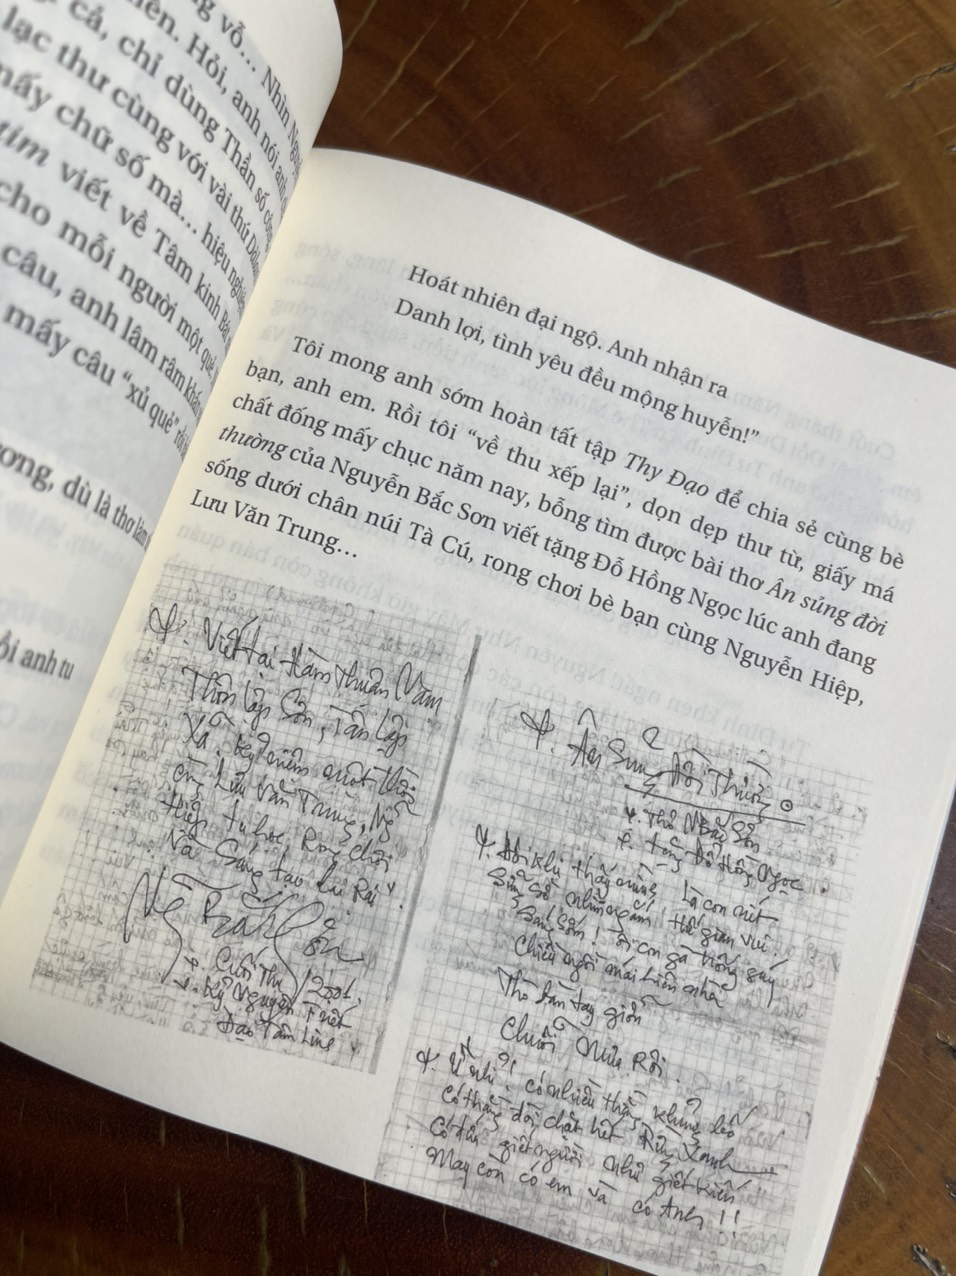 ng vỗ... Nhìn Ngu
iên. Hỏi, anh nói anh
cả, chỉ dùng Thần số công
lạc thư cùng với vài thứ
mấy chữ số mà... hiệu nghiệm
tím viết về Tâm kinh Bát
cho mỗi người một quẻ,
câu, anh lâm râm khấn
mấy câu “xủ quẻ” rồi
ơng, dù là thơ làm
ôi anh tu
Hoát nhiên đại ngộ. Anh nhận ra
Danh lợi, tình yêu đều mộng huyễn!”
Tôi mong anh sớm hoàn tất tập Thy Đạo để chia sẻ cùng bè
bạn, anh em. Rồi tôi “về thu xếp lại”, dọn dẹp thư từ, giấy má
chất đống mấy chục năm nay, bỗng tìm được bài thơ Ân sủng đời
thường của Nguyễn Bắc Sơn viết tặng Đỗ Hồng Ngọc lúc anh đang
sống dưới chân núi Tà Cú, rong chơi bè bạn cùng Nguyễn Hiệp,
Lưu Văn Trung...
Viết tại Hàm Thuận Nam
Thôn Lập Sơn, Tân Lập
Xã. Kỷ niệm một tháng
cùng Lưu Văn Trung, Ng
Hiệp tự học, Rong chơi
Và Sáng tạo Lai Rai
Ng Bắc Sơn
Cuối Thu 2001
Kỷ nguyên Triết
Đạo Tâm Linh
Ân Sủng Đời Thường
Thơ NBắc Sơn
tặng Đỗ Hồng Ngọc
Đôi khi thấy mình là con nít
Sững sờ nhìn ngắm thế gian vui
Sáng sớm! với con gà trống gáy
Chiều ngồi mái hiên nhà
Thò bàn tay giỡn
Chuỗi mưa Rơi.
Ủ nhỉ? có nhiều thằng khùng
Có thằng đòi chặt hết Rừng Xanh
Có đứa giết người như giết kiến
May còn có em và có Anh!!